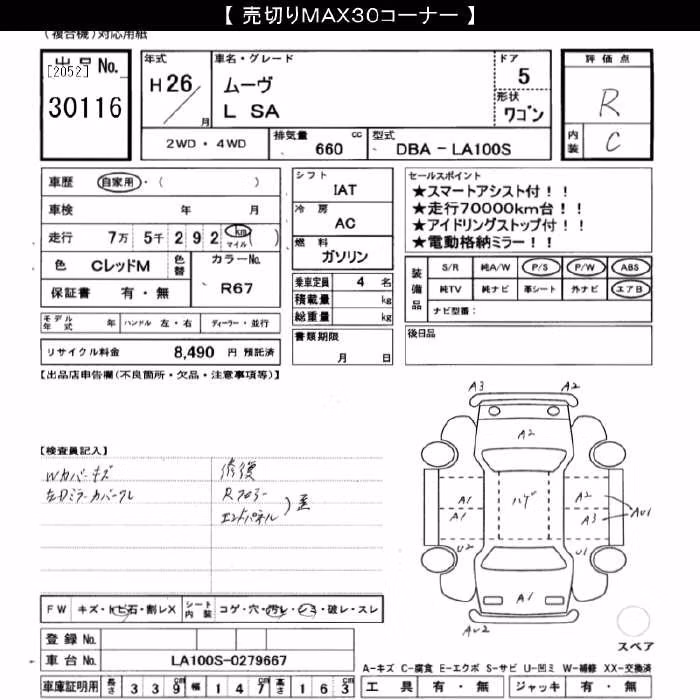 【 売切りMAX30コーナー 】
（複合機）対応用紙
出品No.
[2052]
30116
年式
H 26
月
車名・グレード
ムーヴ
L SA
ドア
5
形状
ワゴン
評価点
R
内装
C
2WD・4WD
排気量
660 cc
型式
DBA － LA100S
車歴 自家用・（ ）
車検 年 月
走行 7万 5千 2 9 2 km マイル ( )
色 CレッドM
色替
カラーNo.
R67
保証書 有・無
モデル年式 年
ハンドル 左・右
ディーラー・並行
リサイクル料金 8,490 円 預託済
シフト
IAT
冷房
AC
燃料
ガソリン
乗車定員 4 名
積載量 kg
総重量 kg
書類期限
月 日
セールスポイント
★スマートアシスト付！！
★走行70000km台！！
★アイドリングストップ付！！
★電動格納ミラー！！
装備品
S/R 純A/W P/S P/W ABS
純TV 純ナビ 革シート 外ナビ エアB
ナビ型番：
後日品
【出品店申告欄（不良箇所・欠品・注意事項等）】
【検査員記入】
Wカバーキズ
左Dミラーカバークレ
修復
Rフロアー
エンドパネル
歪
A3 A2
A2
A1 ハゲ A2
A1 A3 AU1
U2 U1
A1
AU2
スペア
FW キズ・トビ石・割レX
シート内装 コゲ・穴・汚レ・シミ・破レ・スレ
登録No.
車台No. LA100S-0279667
車庫証明用 長さ 3 3 9 cm 幅 1 4 7 cm 高さ 1 6 3 cm
A-キズ C-腐食 E-エクボ S-サビ U-凹ミ W-補修 XX-交換済
工具 有・無 ジャッキ 有・無